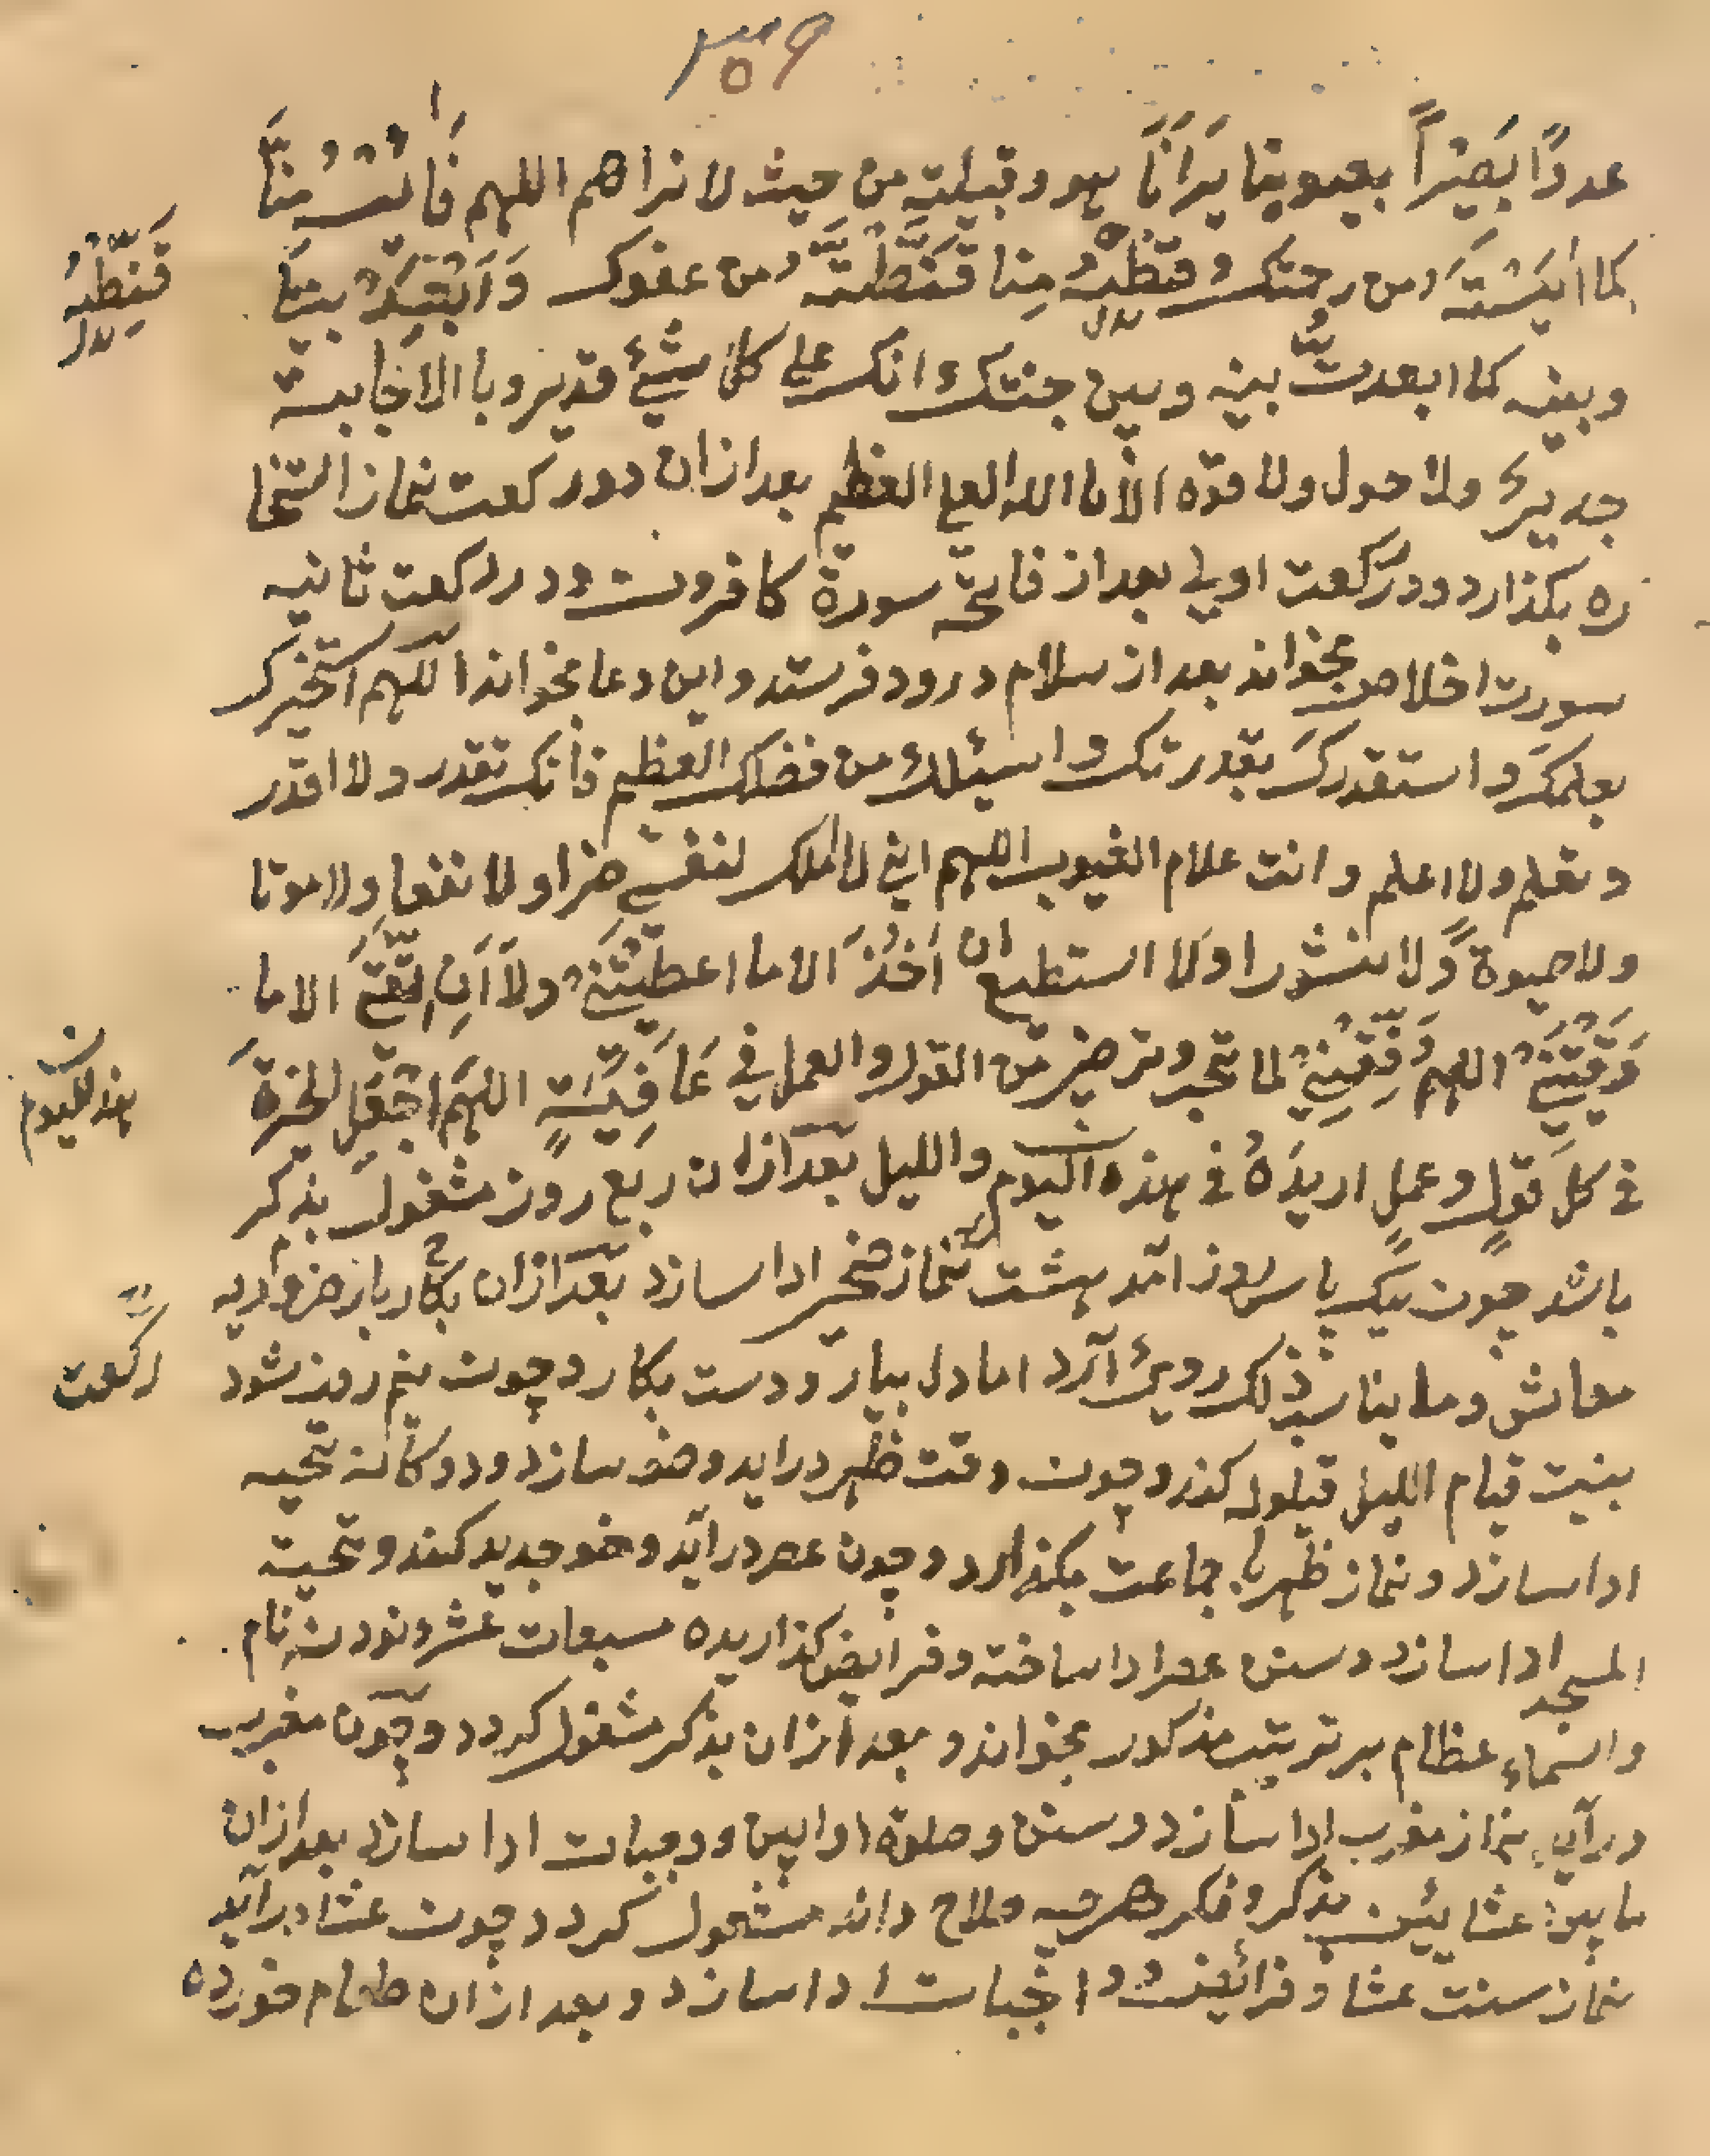 ۳۵۹
عدوًا بَصِیْراً بعیوبنا یَرَانَا هو و قبیلته من حیث لا نراهم اللهم فَاٰیِسْهُ مِنَّا
کما اٰیَسْتَهُ من رحمتک و قنِّطْهُ مِنا کما قَنَّطْتَهُ من عفوک وَاَبْعِدْ بیننَا
وبینه کما ابعدتَّ بینه وبین جنتک انک علی کل شیٔ قدیر و با الاجابت
جدیر ولا حول ولا قوّه الّا با الله العلی العظیم بعد ازان دو رکعت نماز استخا
ره بکذارد و در رکعت اولی بعد از فاتحه سورة کافرون و در رکعت ثانیه
سورت اخلاص بخواند بعد از سلام درود فرستد و این دعا بخواند اللهم استخیرک
بعلمک و استقدرک بقدرتک و اسئلک من فضلک العظیم فأنک تقدر ولا اقدر
وتعلم ولا اعلم و انت علام الغیوب اللهم انی لا املک لنفسی ضرا ولا نفعا ولا موتا
ولا حیوة وّلا نشورا ولا استطیع ان اَخُذَ الا ما اعطیتَنِیْ ولا اَن اتّقیَ الا ما
وَقَیْتَنِیْ اللهم وَفِّقْنِیْ لما تحب وترضی من القول والعمل فی عَافِیَتٍ اللهم اجْعَلِ الخیرةَ
فی کلّ قولٍ وعملٍ اریدُهُ فی هذه الیوم واللیل بعد ازان ربع روز مشغول بذکر
باشد چون یک پاس روز آمد هشت نماز ضحی ادا سازد بعد ازان بکار بار ضروریه
معاش و ما یناسب ذلک روی آرد اما دل بیار و دست بکار و چون نیم روز شود
بنیت قیام اللیل قیلوله کند و چون وقت ظهر دراید وضو سازد و دوکانه تحیه
ادا سازد و نماز ظهر با جماعت بکذارد و چون عصر درآید وضو جدید کند و تحیته
المسجد ادا سازد و سنن عصر ادا ساخته و فرایض کذاریده مسبعات عشر و نود نه نام
و اسماء عظام بر ترتیب مذکور بخواند و بعد ازان بذکر مشغول کردد و چون مغرب
درآید نماز مغرب ادا سازد و سنن و صلوة اوابین و وجبات ادا سازد بعد ازان
ما بین عشایئن بذکر و فکر هرچه صلاح داند مشغول کردد و چون عشا درآید
نماز سنت عشا و فرائض و اجبات ادا سازد و بعد ازان طعام خورده
قَنِّطْهُ
بدل
هذ الیوم
رکعت